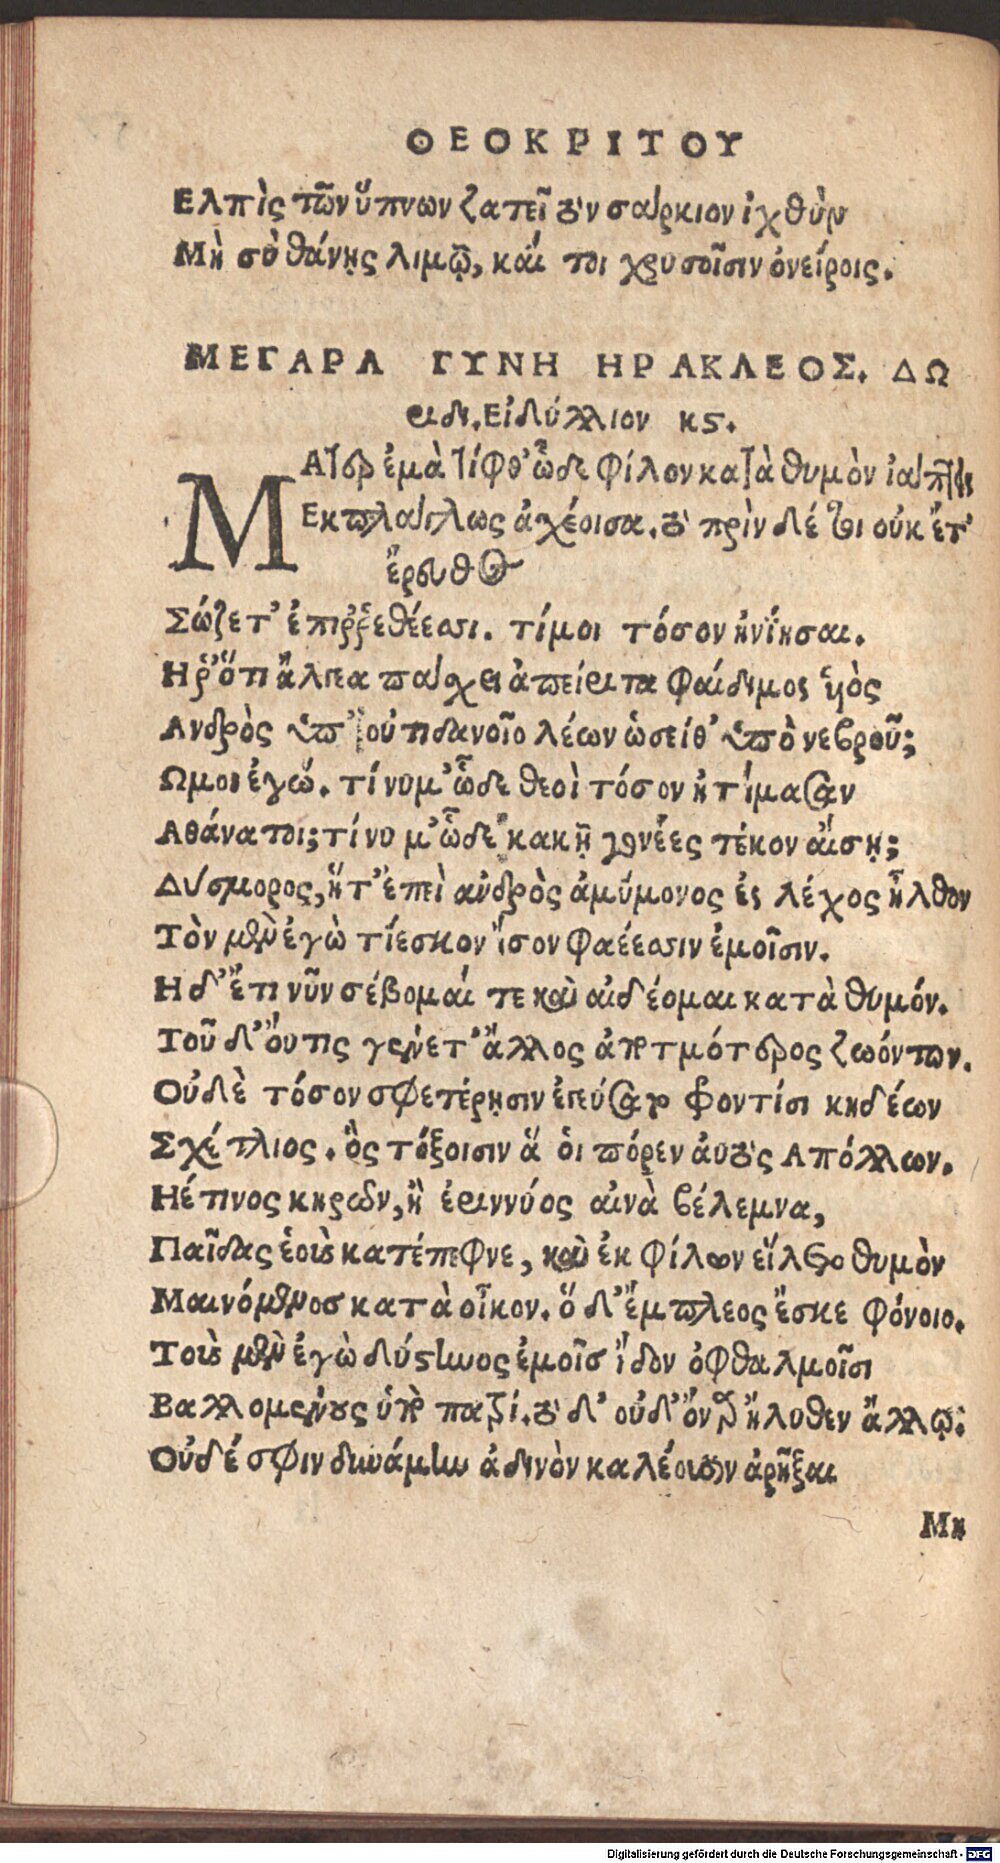 ΘΕΟΚΡΙΤΟΥ
Ελπὶς τῶν ὕπνων ζατεῖ τὸν σάρκινον ἰχθὺν
Μὴ σὺ θάνῃς λιμῷ, καί τοι χρυσοῖσιν ὀνείροις.
ΜΕΓΑΡΑ ΓΥΝΗ ΗΡΑΚΛΕΟΣ. ΔΩ
ριδι. Εἰδύλλιον κϛ.
ΜΑτερ ἐμὰ τίφθ' ὧδε φίλον κατὰ θυμὸν ἰάπτεις
Εκπλάγλως ἀχέοισα. τὸ πρὶν δέ τοι οὐκ ἔτ'
ἔρευθος
Σώζετ' ἐπὶ ῥεθέεσσι. τί μοι τόσον ἠνίησαι.
Η ῥ' ὅτι ἄλγεα πάσχει ἀπείριτα φαίδιμος ὑὸς
Ανδρὸς ὑπ' οὐτιδανοῖο λέων ὡσείθ' ὑπὸ νεβροῦ;
Ωμοι ἐγώ. τί νυ μ' ὧδε θεοὶ τόσον ἠτίμασαν
Αθάνατοι; τί νυ μ' ὧδε κακῇ γονέες τέκον αἴσῃ;
Δύσμορος, ἥτ' ἐπεὶ ἀνδρὸς ἀμύμονος ἐς λέχος ἦλθον
Τὸν μὲν ἐγὼ τίεσκον ἴσον φαέεσσιν ἐμοῖσιν.
Η δ' ἔτι νῦν σέβομαί τε καὶ αἰδέομαι κατὰ θυμόν.
Τοῦ δ' οὔτις γένετ' ἄλλος ἀποτμότερος ζωόντων.
Οὐδὲ τόσον σφετέρῃσιν ἐγεύσατο φροντίσι κηδέων
Σχέτλιος. ὃς τόξοισιν ἅ οἱ πόρεν αὐτὸς Απόλλων.
Ηέ τινος κηρῶν, ἢ ἐριννύος αἰνὰ βέλεμνα,
Παῖδας ἑοὺς κατέπεφνε, καὶ ἐκ φίλων εἵλετο θυμὸν
Μαινόμενος κατὰ οἶκον. ὅ δ' ἔμπλεος ἔσκε φόνοιο.
Τοὺς μὲν ἐγὼ δύστηνος ἐμοῖσ ἴδον ὀφθαλμοῖσι
Βαλλομένους ὑπὸ πατρί. τὸ δ' οὐδ' ὄναρ ἤλυθεν ἄλλῳ.
Οὐδέ σφιν δυνάμην ἀδινὸν καλέουσιν ἀρῆξαι
Μη
Digitalisierung gefördert durch die Deutsche Forschungsgemeinschaft - DFG